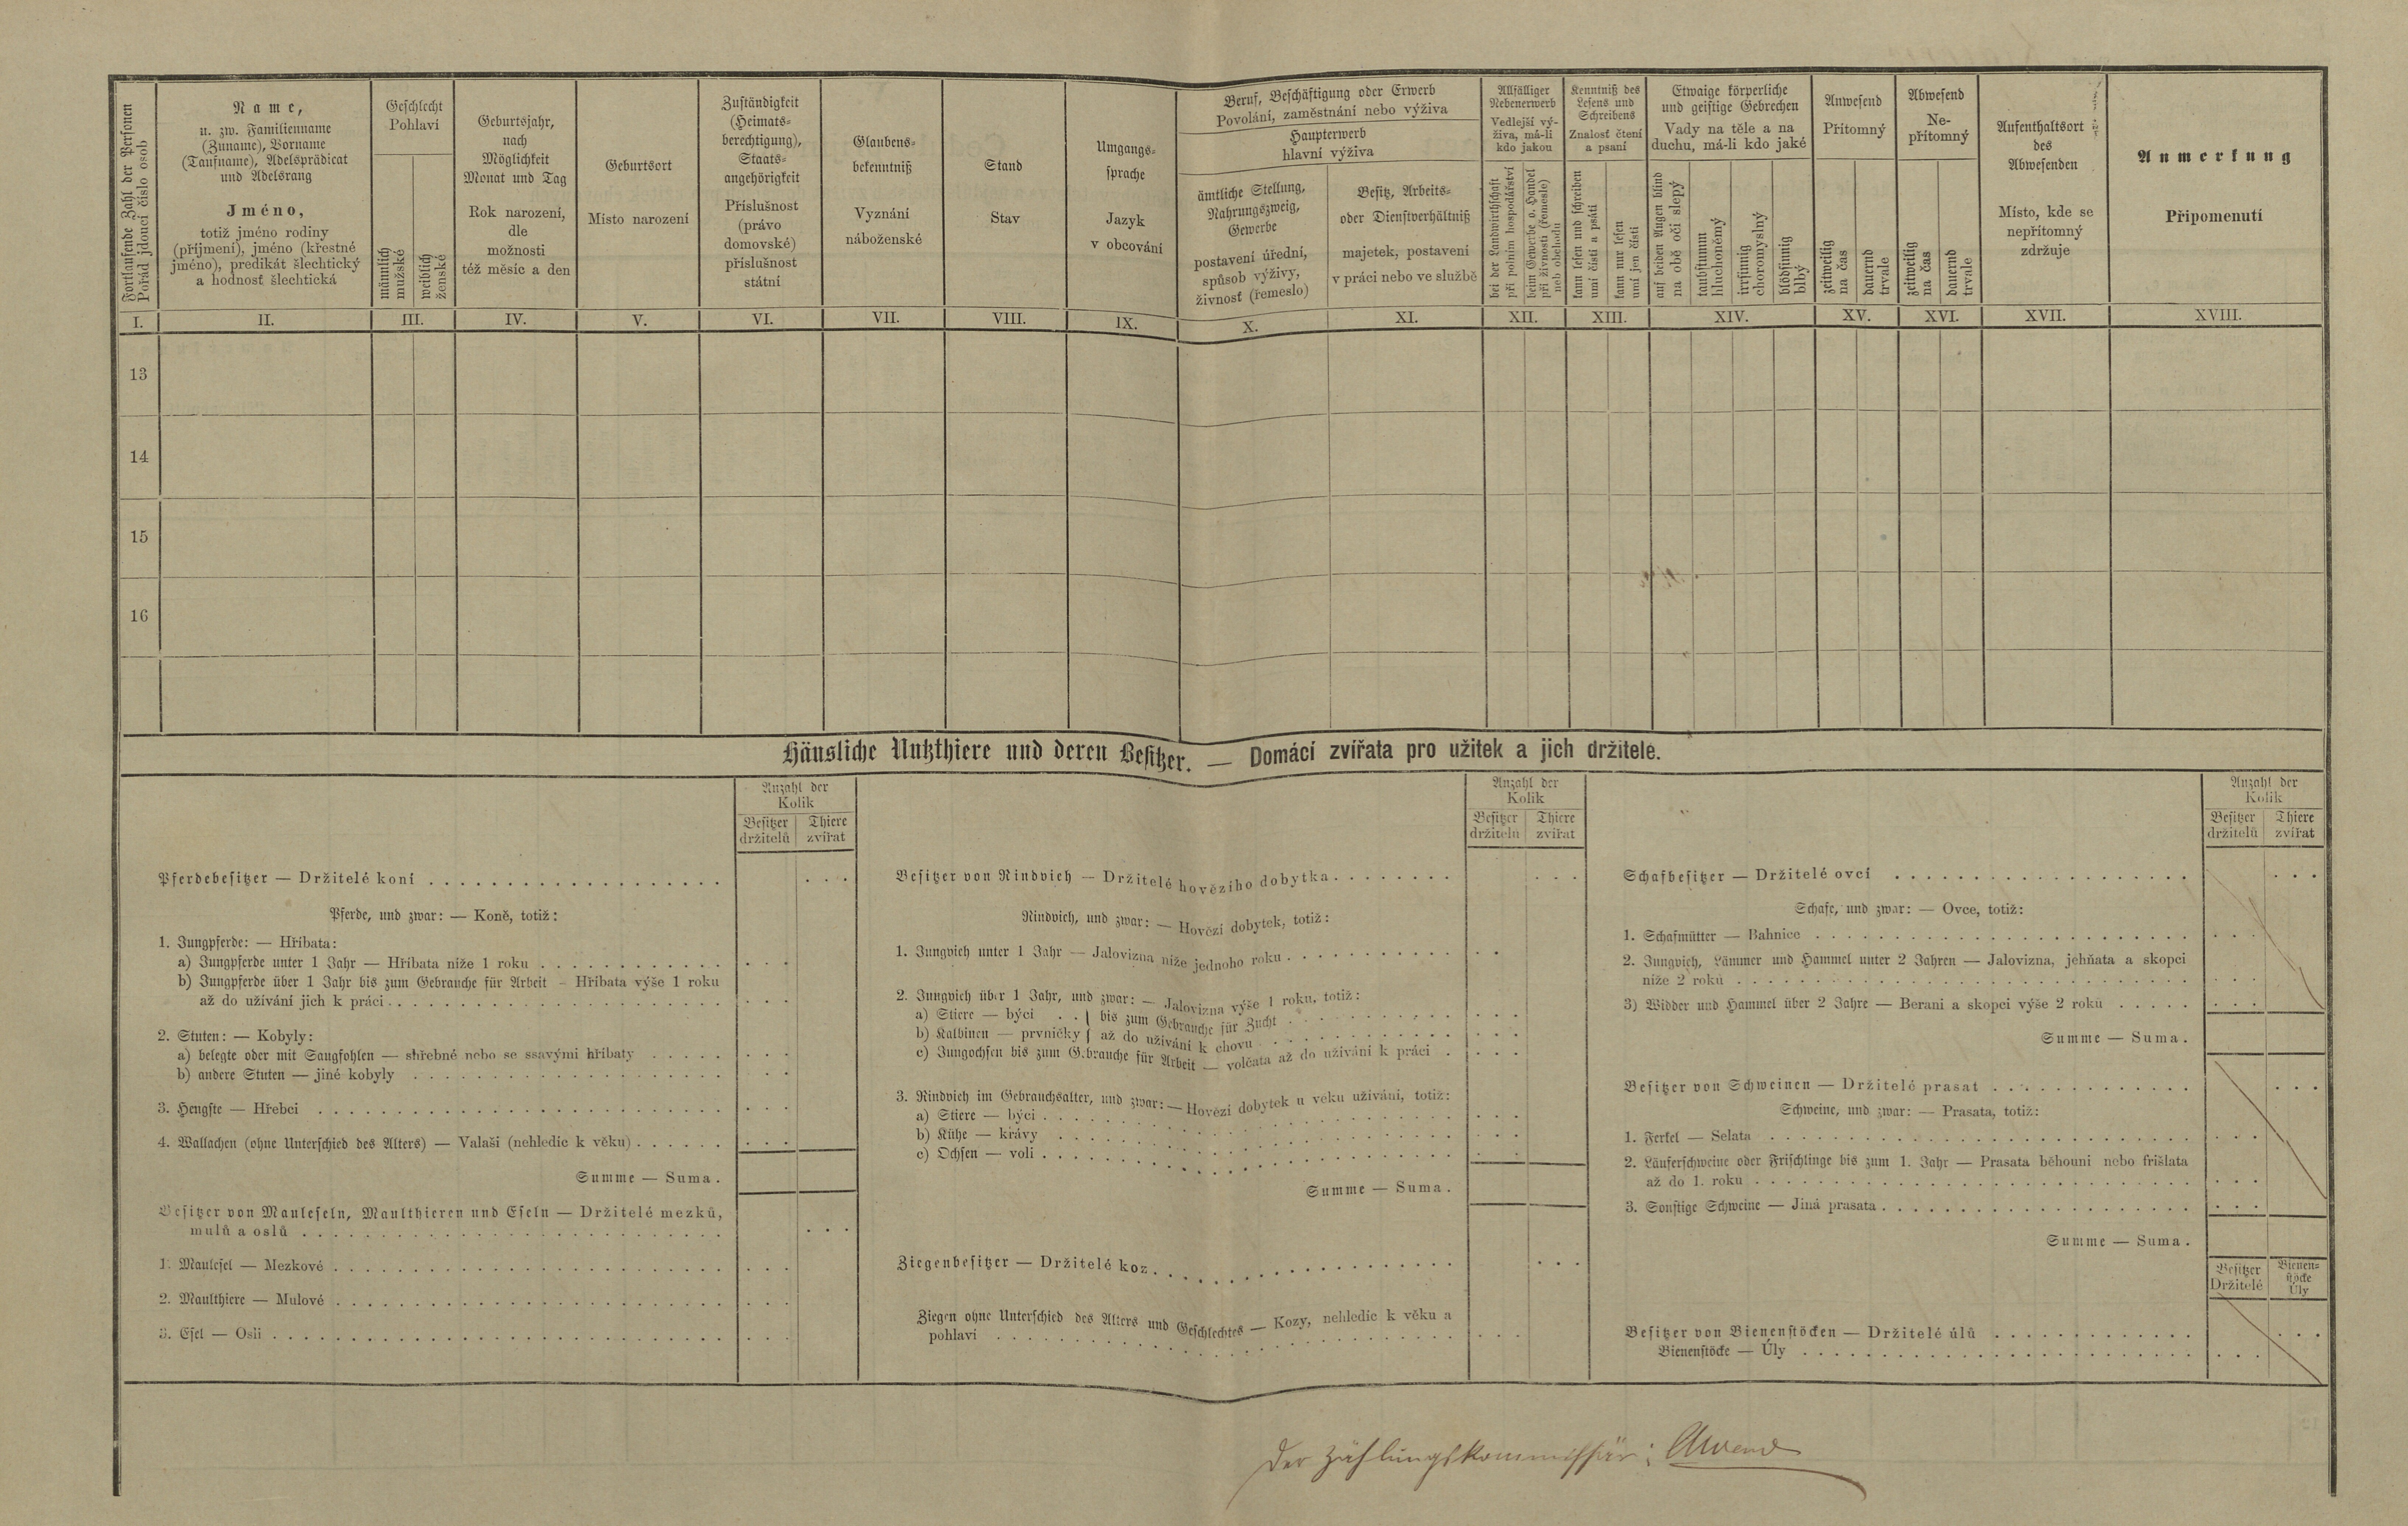 Fortlaufende Zahl der Personen
Pořád jdoucí číslo osob
Name,
u. zw. Familienname
(Zuname), Vorname
(Taufname), Adelsprädicat
und Adelsrang
Jméno,
totiž jméno rodiny
(příjmení), jméno (křestné
jméno), predikát šlechtický
a hodnosť šlechtická
Geschlecht
Pohlaví
männlich
mužské
weiblich
ženské
Geburtsjahr,
nach
Möglichkeit
Monat und Tag
Rok narození,
dle
možnosti
též měsíc a den
Geburtsort
Místo narození
Zuständigkeit
(Heimats-
berechtigung),
Staats-
angehörigkeit
Příslušnost
(právo
domovské)
příslušnost
státní
Glaubens-
bekenntniß
Vyznání
náboženské
Stand
Stav
Umgangs-
sprache
Jazyk
v obcování
Beruf, Beschäftigung oder Erwerb
Povolání, zaměstnání nebo výživa
Haupterwerb
hlavní výživa
ämtliche Stellung,
Nahrungszweig,
Gewerbe
postavení úřední,
spůsob výživy,
živnosť (řemeslo)
Besitz, Arbeits-
oder Dienstverhältniß
majetek, postavení
v práci nebo ve službě
Allfälliger
Nebenerwerb
Vedlejší vý-
živa, má-li
kdo jakou
bei der Landwirthschaft
při polním hospodářství
beim Gewerbe o. Handel
při živnosti (řemeslo)
neb obchodu
Kenntniß des
Lesens und
Schreibens
Znalosť čtení
a psaní
kann lesen und schreiben
umí čísti a psáti
kann nur lesen
umí jen čísti
Etwaige körperliche
und geistige Gebrechen
Vady na těle a na
duchu, má-li kdo jaké
auf beiden Augen blind
na obě oči slepý
taubstumm
hluchoněmý
irrsinnig
choromyslný
blödsinnig
blbý
Anwesend
Přítomný
zeitweilig
na čas
dauernd
trvale
Abwesend
Ne-
přítomný
zeitweilig
na čas
dauernd
trvale
Aufenthaltsort
des
Abwesenden
Místo, kde se
nepřítomný
zdržuje
Anmerkung
Připomenutí
I. II. III. IV. V. VI. VII. VIII. IX. X. XI. XII. XIII. XIV. XV. XVI. XVII. XVIII.
13
14
15
16
Häusliche Nutzthiere und deren Besitzer. — Domácí zvířata pro užitek a jich držitele.
Anzahl der
Kolik
Besitzer Thiere
držitelů zvířat
Pferdebesitzer — Držitelé koní
Pferde, und zwar: — Koně, totiž:
1. Jungpferde: — Hříbata:
a) Jungpferde unter 1 Jahr — Hříbata níže 1 roku
b) Jungpferde über 1 Jahr bis zum Gebrauche für Arbeit – Hříbata výše 1 roku
až do užívání jich k práci
2. Stuten: — Kobyly:
a) belegte oder mit Saugfohlen — shřebné nebo se ssavými hříbaty
b) andere Stuten — jiné kobyly
3. Hengste — Hřebci
4. Wallachen (ohne Unterschied des Alters) — Valaši (nehledíc k věku)
Summe — Suma.
Besitzer von Mauleseln, Maulthieren und Eseln — Držitelé mezků,
mulů a oslů
1. Maulesel — Mezkové
2. Maulthiere — Mulové
3. Esel — Osli
Anzahl der
Kolik
Besitzer Thiere
držitelů zvířat
Besitzer von Rindvieh — Držitelé hovězího dobytka
Rindvieh, und zwar: — Hovězí dobytek, totiž:
1. Jungvieh unter 1 Jahr — Jalovizna níže jednoho roku
2. Jungvieh über 1 Jahr, und zwar: — Jalovizna výše 1 roku, totiž:
a) Stiere — býci . . } bis zum Gebrauche für Zucht
b) Kalbinen — prvničky } až do užívání k chovu
c) Jungochsen bis zum G.brauche für Arbeit — volčata až do užívání k práci
3. Rindvieh im Gebrauchsalter, und zwar: — Hovězí dobytek u věku užívání, totiž:
a) Stiere — býci
b) Kühe — krávy
c) Ochsen — voli
Summe — Suma.
Ziegenbesitzer — Držitelé koz
Ziegen ohne Unterschied des Alters und Geschlechtes — Kozy, nehledíc k věku a
pohlaví
Anzahl der
Kolik
Besitzer Thiere
držitelů zvířat
Schafbesitzer — Držitelé ovcí
Schafe, und zwar: — Ovce, totiž:
1. Schafmütter — Bahnice
2. Jungvieh, Lämmer und Hammel unter 2 Jahren — Jalovizna, jehňata a skopci
níže 2 roků
3) Widder und Hammel über 2 Jahre — Berani a skopci výše 2 roků
Summe — Suma.
Besitzer von Schweinen — Držitelé prasat
Schweine, und zwar: — Prasata, totiž:
1. Ferkel — Selata
2. Läuferschweine oder Frischlinge bis zum 1. Jahr — Prasata běhouni nebo frišlata
až do 1. roku
3. Sonstige Schweine — Jiná prasata
Summe — Suma.
Besitzer Bienen-
stöcke
Držitelé Úly
Besitzer von Bienenstöcken — Držitelé úlů
Bienenstöcke — Úly
Der Zählungskommissär: